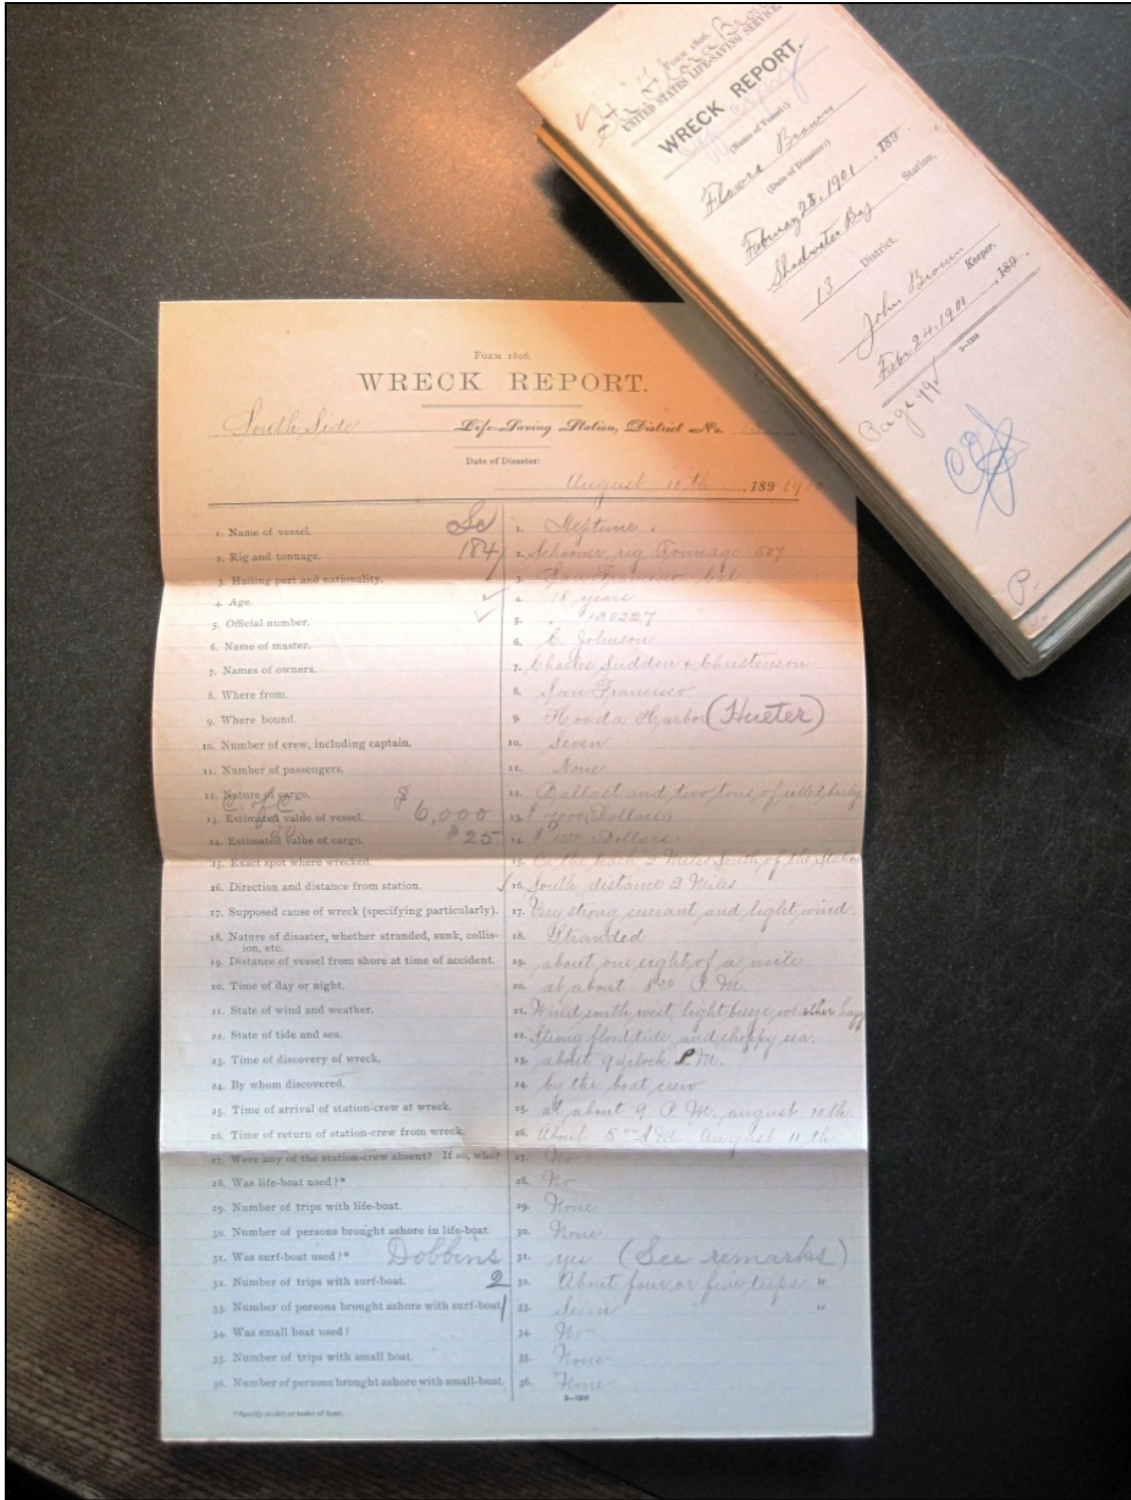 FORM 1806.
UNITED STATES LIFE-SAVING SERVICE.
WRECK REPORT.
(Name of Vessel:)
Flowra Brown
(Date of Disaster:)
February 28, 1901, 189 .
Shoalwater Bay Station.
13 District.
John Brown Keeper.
Febr 24. 1901, 189 .
Page 99
P.
FORM 1806.
WRECK REPORT.
South Side Life-Saving Station, District No.
Date of Disaster:
August 10th, 189 1900
1. Name of vessel. Sc 1. Neptune.
2. Rig and tonnage. 184 2. Schooner, rig Tonnage 507
3. Hailing port and nationality. 3. San Francisco Cal.
4. Age. 4. 18 years
5. Official number. 5. 130227
6. Name of master. 6. C. Johnson
7. Names of owners. 7. Charles Sudden & Christenson
8. Where from. 8. San Francisco
9. Where bound. 9. Harbor (Hueter)
10. Number of crew, including captain. 10. Seven
11. Number of passengers. 11. None
12. Nature of cargo. 12. Ballast and two tons, of rolled, barley
13. Estimated value of vessel. $6,000 13. Dollars
14. Estimated value of cargo. $25 14. $ Dollars
15. Exact spot where wrecked. 15. On the 2 Miles South, of the Station
16. Direction and distance from station. 16. South, distance 2 Miles
17. Supposed cause of wreck (specifying particularly). 17. Very strong currant and light, wind.
18. Nature of disaster, whether stranded, sunk, collis- 18. Stranded
ion, etc.
19. Distance of vessel from shore at time of accident. 19. about one eight, of a mile
20. Time of day or night. 20. at about 8 20 P.M.
21. State of wind and weather. 21. Wind south, west, light breeze, weather hazy
22. State of tide and sea. 22. Strong flood, tide, and choppy sea.
23. Time of discovery of wreck. 23. about 9 o'clock P.M.
24. By whom discovered. 24. by the boat crew
25. Time of arrival of station-crew at wreck. 25. at about 9 P.M. august 10th.
26. Time of return of station-crew from wreck. 26. About 5 00 A.M. August 11th
27. Were any of the station-crew absent? If so, who? 27. No
28. Was life-boat used?* 28. No
29. Number of trips with life-boat. 29. None
30. Number of persons brought ashore in life-boat. 30. None
31. Was surf-boat used?* Dobbins 31. yes (See remarks)
32. Number of trips with surf-boat. 2 32. About four, or five trips "
33. Number of persons brought ashore with surf-boat 1 33. Seven "
34. Was small boat used? 34. No
35. Number of trips with small boat. 35. None
36. Number of persons brought ashore with small-boat. 36. None
*Specify model or make of boat.